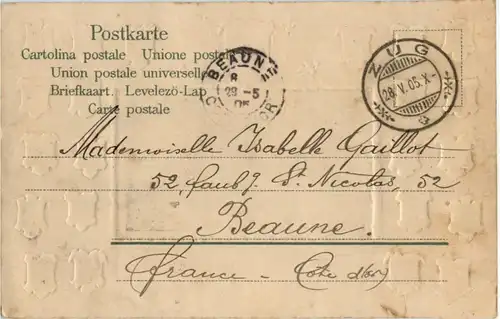 Postkarte
Cartolina postale Unione postale
Union postale universelle
Briefkaart. Levelezö-Lap
Carte postale
BEAUNE
8
29 -5
05
COTE D'OR
ZUG
28.V.05.X-
Mademoiselle Isabelle Gaillot
52, faubg. St. Nicolas, 52
Beaune.
France - Cote d'or